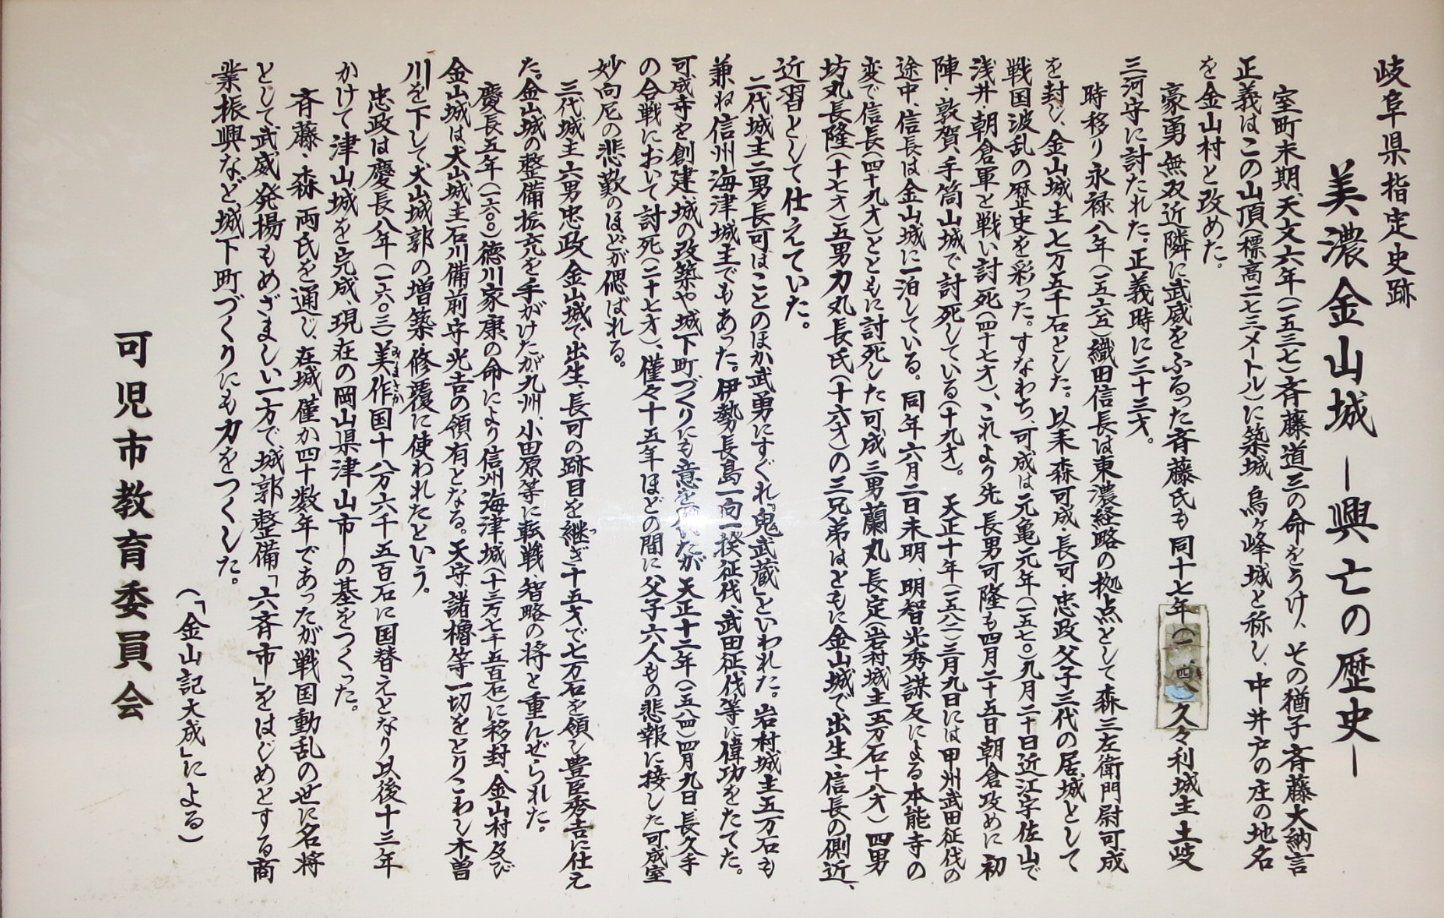 岐阜県指定史跡
美濃金山城 ―興亡の歴史―
室町末期、天文六年(一五三七)斉藤道三の命をうけ、その猶子斉藤大納言
正義はこの山頂(標高二七三メートル)に築城 烏ヶ峰城と称し、中井戸の庄の地名
を金山村と改めた。
豪勇無双近隣に武威をふるった斉藤氏も同十七年(一 四 久々利城主土岐
三河守に討たれた。正義時に三十三才。
時移り永禄八年(一五六五)織田信長は東濃経略の拠点として森三左衛門尉可成
を封じ、金山城主七万五千石とした。以来森可成、長可、忠政父子三代の居城として
戦国波乱の歴史を彩った。すなわち、可成は元亀元年(一五七〇)九月二十日近江宇佐山で
浅井 朝倉軍と戦い討死(四十七才)、これより先 長男可隆も四月二十五日朝倉攻めに初
陣・敦賀、手筒山城で討死している(十九才)。 天正十年(一五八二)三月九日には甲州武田征伐の
途中、信長は金山城に一泊している。同年六月二日未明、明智光秀謀反による本能寺の
変で信長(四十九才)とともに討死した可成三男蘭丸長定(岩村城主五万石十八才)四男
坊丸長隆(十七才)五男力丸長氏(十六才)の三兄弟はともに金山城で出生、信長の側近、
近習として仕えていた。
二代城主二男長可はことのほか武勇にすぐれ「鬼武蔵」といわれた。岩村城主五万石も
兼ね信州海津城主でもあった。伊勢長島一向一揆征伐、武田征伐等に偉功をたてた。
可成寺を創建、城の改築や城下町づくりにも意を たが天正十二年(一五八四)四月九日、長久手
の合戦において討死(二十七才)、僅々十五年ほどの間に父子六人もの悲報に接した可成室
妙向尼の悲歎のほどが偲ばれる。
三代城主六男忠政金山城で出生、長可の跡目を継ぎ十五才で七万石を領し豊臣秀吉に仕え
た。金山城の整備拡充を手がけたが九州、小田原等に転戦、智略の将と重んぜられた。
慶長五年(一六〇〇)徳川家康の命により信州海津城十三万七千五百石に移封、金山村及び
金山城は犬山城主石川備前守光吉の領有となる。天守諸櫓等一切をとりこわし木曽
川を下して犬山城郭の増築・修覆に使われたという。
忠政は慶長八年(一六〇三)美作国十八万六千五百石に国替えとなり以後十三年
かけて津山城を完成現在の岡山県津山市の基をつくった。
斉藤・森両氏を通じ、在城僅か四十数年であったが戦国動乱の世に名将
として武威発揚もめざましい一方で、城郭整備「六斉市」をはじめとする商
業振興など城下町づくりにも力をつくした。
(「金山記大成」による)
可児市教育委員会